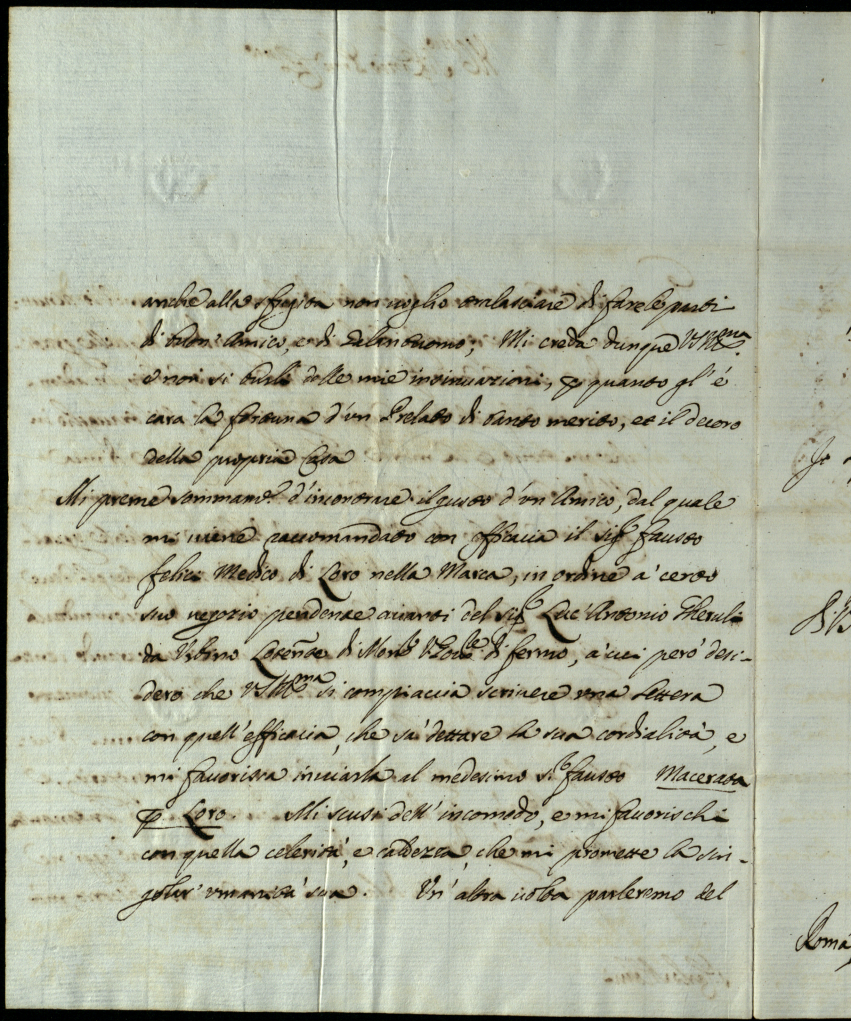 anche alla sfugita non voglio tralasciare di far le parti
di buon' Amico, e di Galantuomo; Mi creda dunque VS Ill.ma
e non si burli delle mie insinuazioni, p quanto gl' è
cara la fortuna d'un Prelato di tanto merito, et il decoro
della propria Casa
Mi preme sommam.te d'incontrare il gusto d'un Amico, dal quale
mi viene raccomandato con efficacia il sig.r fausto
felici Medico di Loro nella Marca, in ordine a' certo
suo negozio pendente avanti del sig.r Luc' Antonio
da Urbino di Mons.r di fermo, a' cui però desi-
dero che VS Ill.ma si compiaccia scrivere una Lettera
con quell' efficacia, che sa' dettare la sua cordialità, e
mi favorisca inviarla al medesimo s.r fausto Macerata
p Loro. Mi scusi dell' incomodo, e mi favorischi
con quella celerità, e caldezza, che mi promette la sin-
golar' umanità sua. Un' altra volta parleremo del
Roma